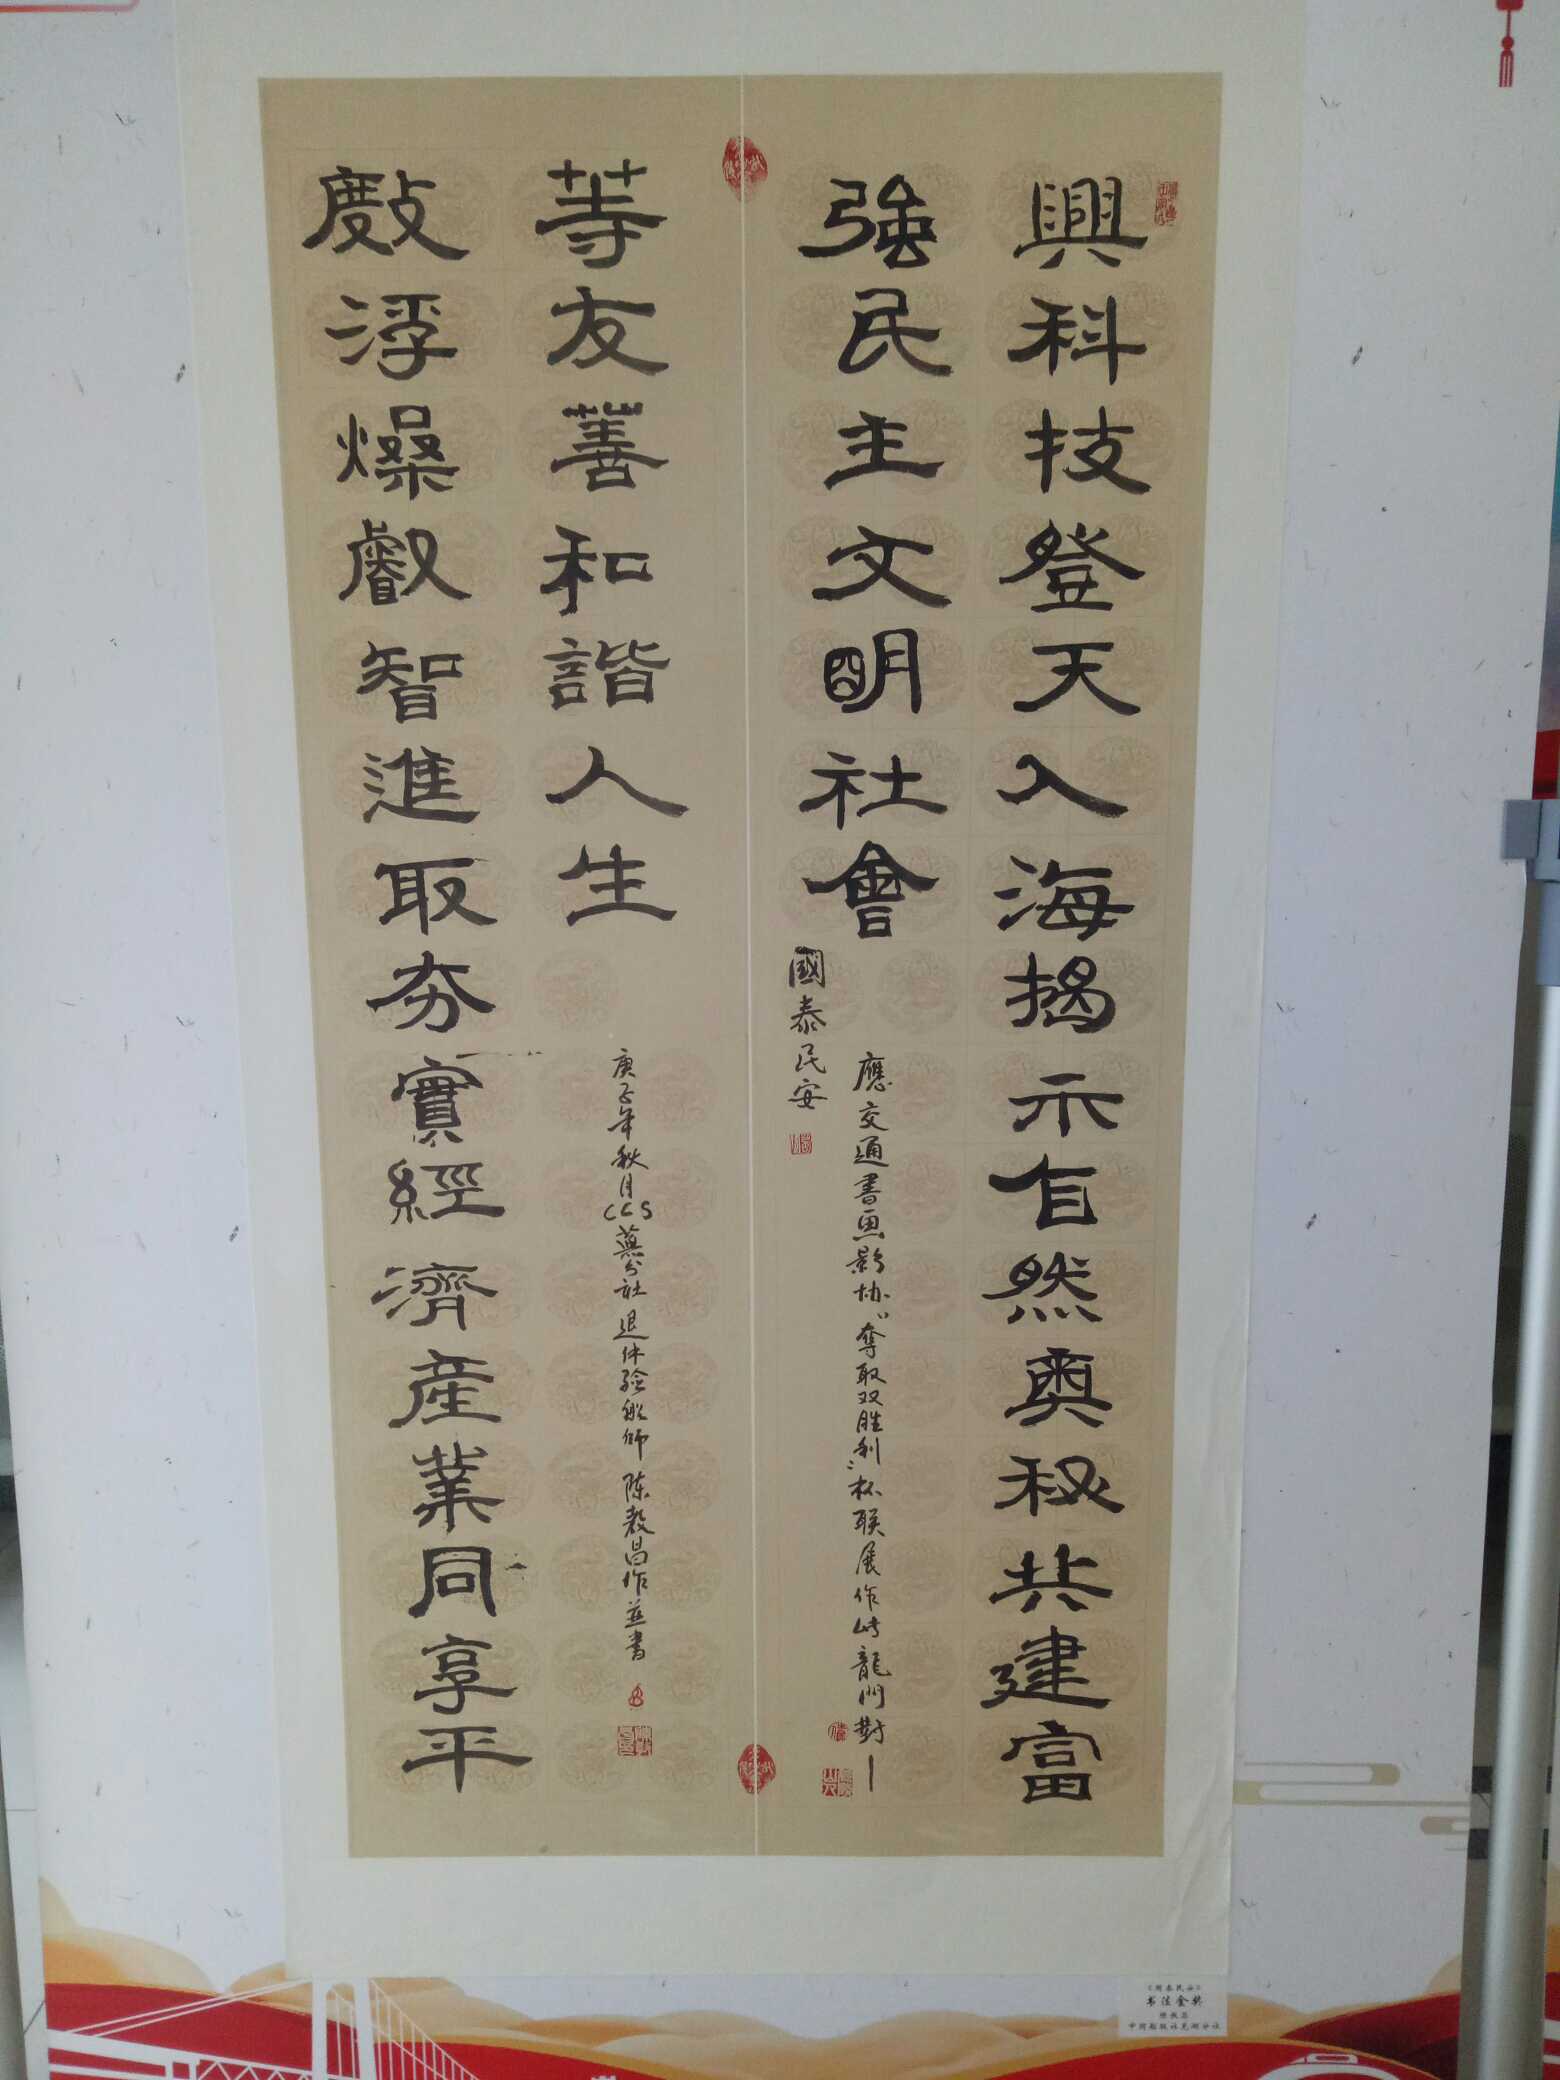 興科技登天入海揭示自然奥秘共建富
強民主文明社會
國泰民安
應交通書画影协“奪取双胜利”杯联展作此龍門對一
敲浮燥叡智進取夯實經濟產業同享平
等友善和諧人生
庚子年秋月CCS蕪分社退休验船师陈毅昌作並書
《国泰民安》
书法金奖
中国船级社芜湖分社